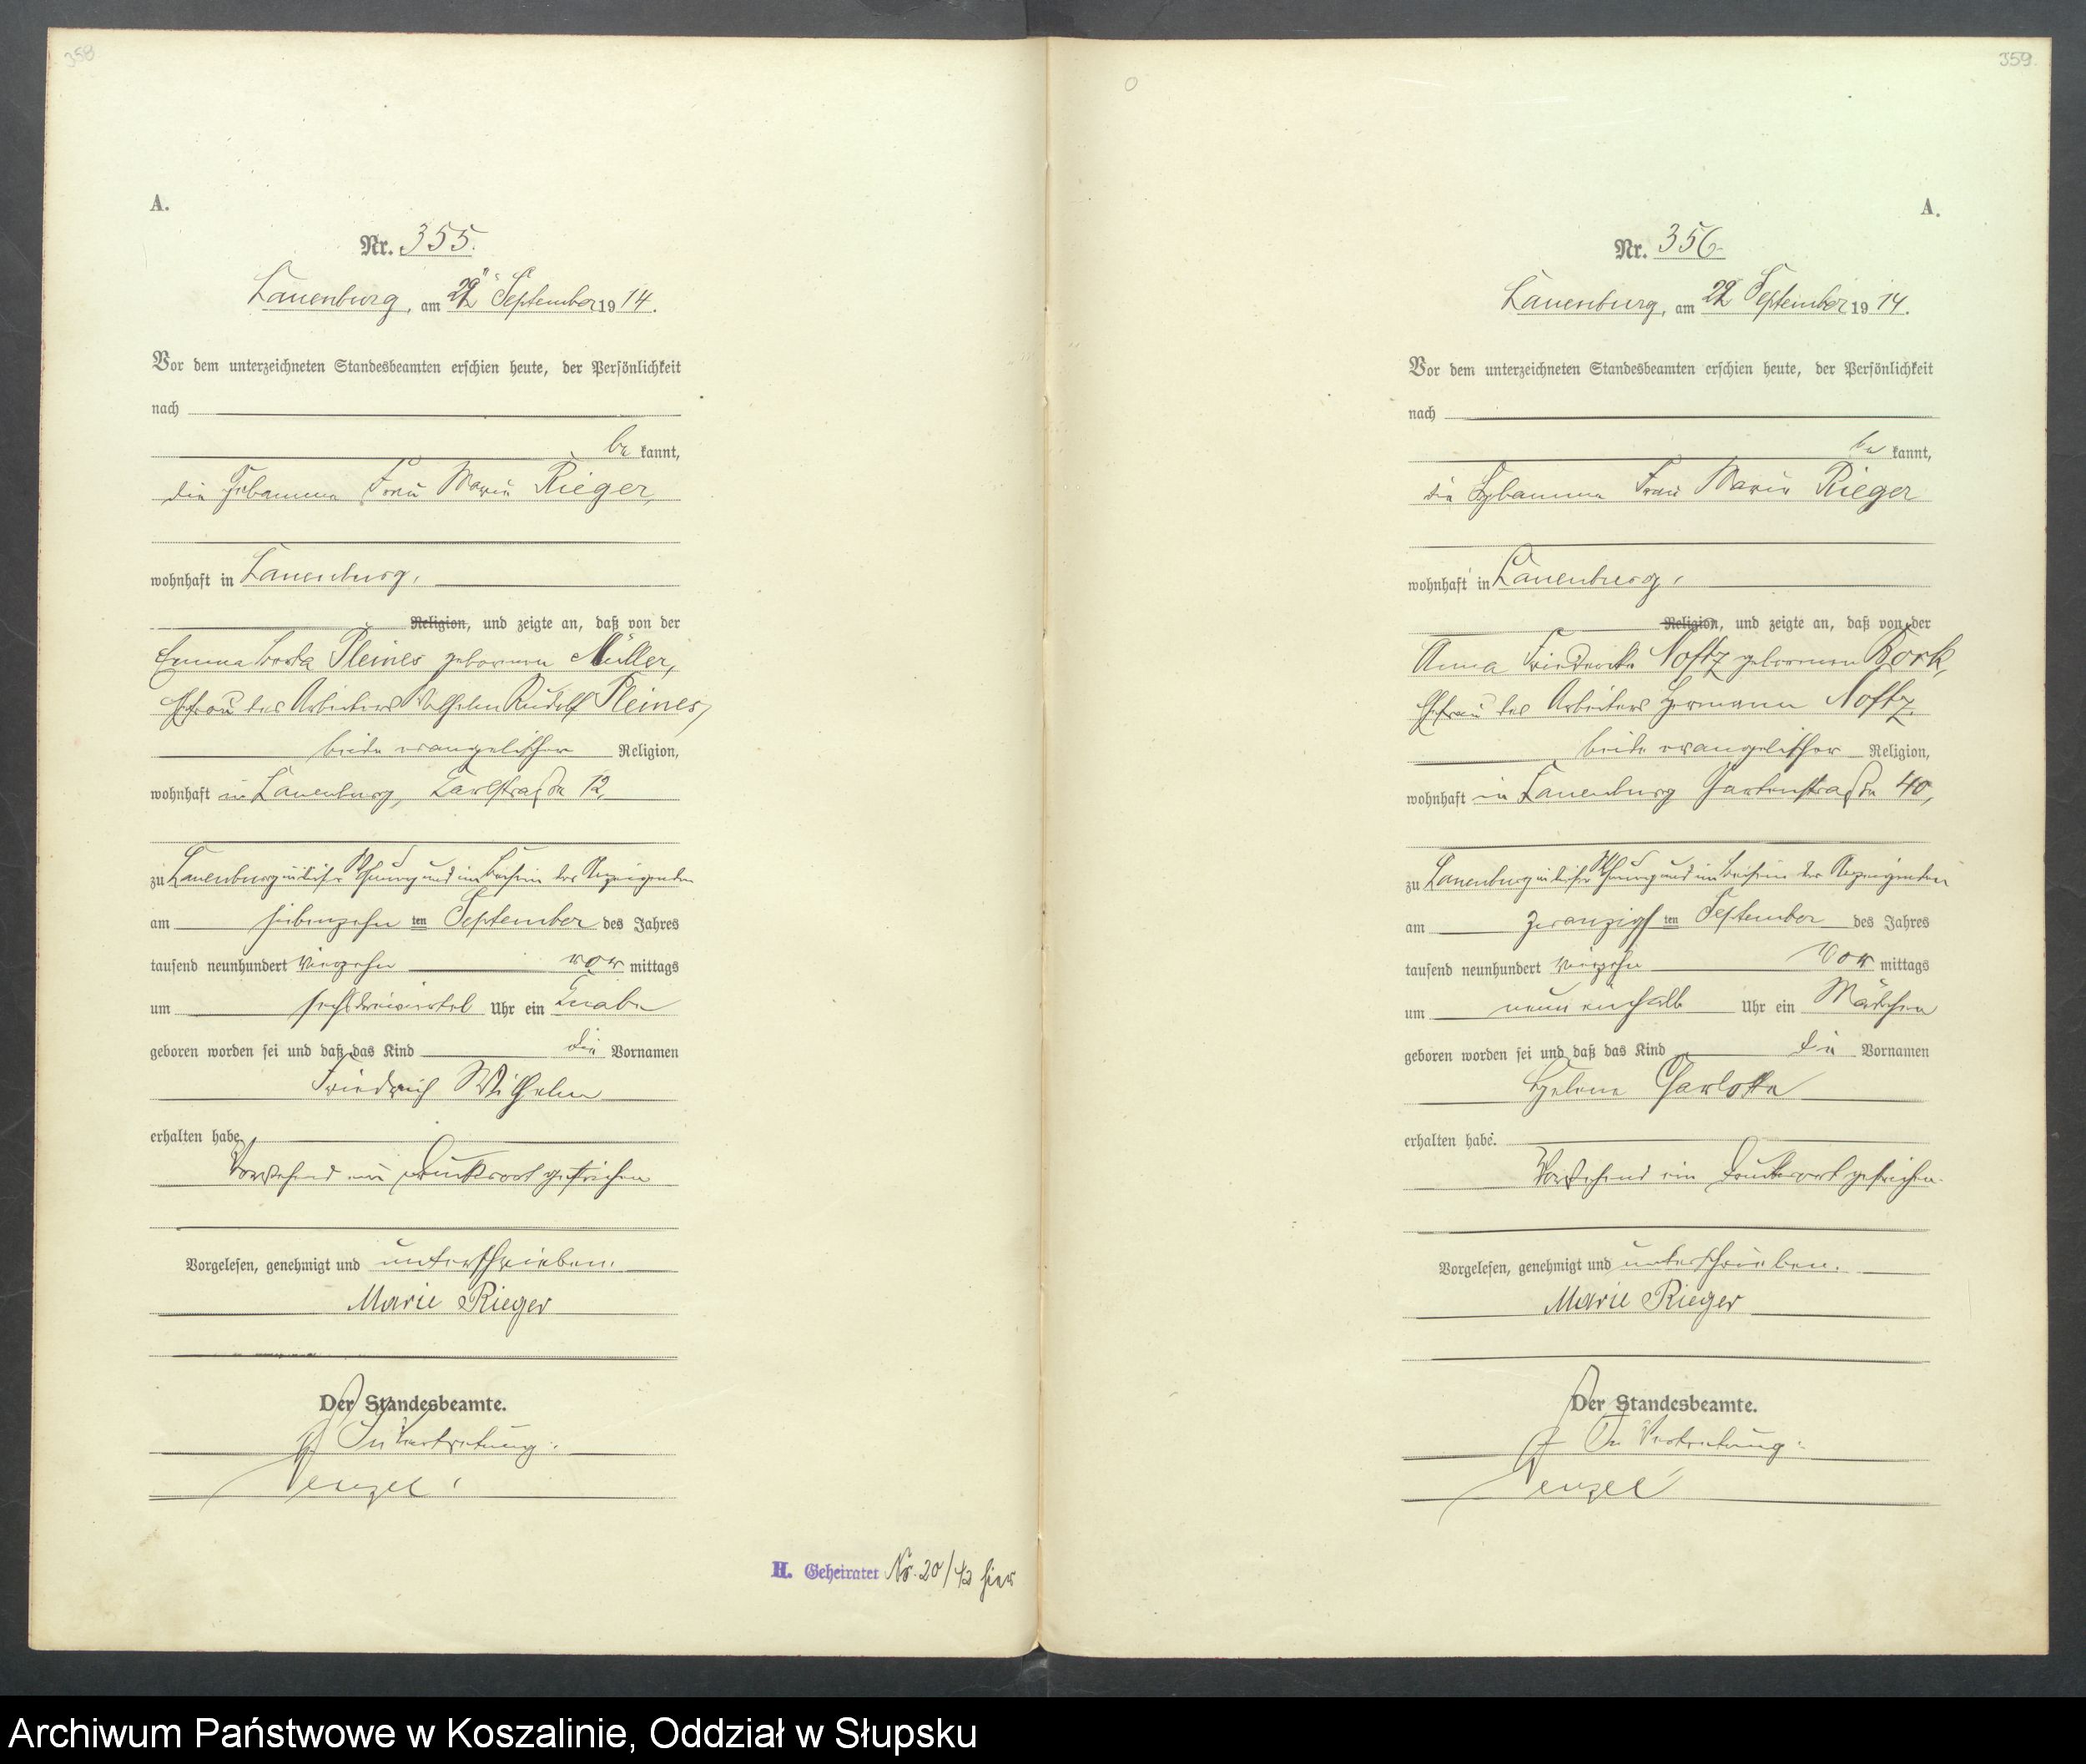 358
A.
Nr. 355.
Lauenburg, am 22 September 1914.
Vor dem unterzeichneten Standesbeamten erschien heute, der Persönlichkeit
nach
be kannt,
die Hebamme Frau Marie Rieger,
wohnhaft in Lauenburg,
Religion, und zeigte an, daß von der
Emma Pleines geborenen Müller,
Ehefrau des Arbeiters Wilhelm Rudolf Pleines,
beide evangelischer Religion,
wohnhaft in Lauenburg, Karlstraße 12,
zu Lauenburg in dieser Wohnung und im Beisein der Anzeigenden
am siebenzehn ten September des Jahres
tausend neunhundert vierzehn vor mittags
um sechsdreiviertel Uhr ein Knabe
geboren worden sei und daß das Kind die Vornamen
Friedrich Wilhelm
erhalten habe.
Vorstehend ein Druckwort gestrichen
Vorgelesen, genehmigt und unterschrieben.
Marie Rieger
Der Standesbeamte.
In Vertretung:
Wenzel
H. Geheiratet Nr. 20/42 hier
0
359.
A.
Nr. 356.
Lauenburg, am 22 September 1914.
Vor dem unterzeichneten Standesbeamten erschien heute, der Persönlichkeit
nach
be kannt,
die Hebamme Frau Marie Rieger
wohnhaft in Lauenburg,
Religion, und zeigte an, daß von der
Anna Friederike Noffz geborenen Bork,
Ehefrau des Arbeiters Hermann Noffz,
beide evangelischer Religion,
wohnhaft in Lauenburg Gartenstraße 40,
zu Lauenburg in dieser Wohnung und im Beisein der Anzeigenden
am zwanzigs ten September des Jahres
tausend neunhundert vierzehn vor mittags
um neun einhalb Uhr ein Mädchen
geboren worden sei und daß das Kind die Vornamen
Helene Charlotte
erhalten habe.
Vorstehend ein Druckwort gestrichen.
Vorgelesen, genehmigt und unterschrieben.
Marie Rieger
Der Standesbeamte.
In Vertretung:
Wenzel
Archiwum Państwowe w Koszalinie, Oddział w Słupsku